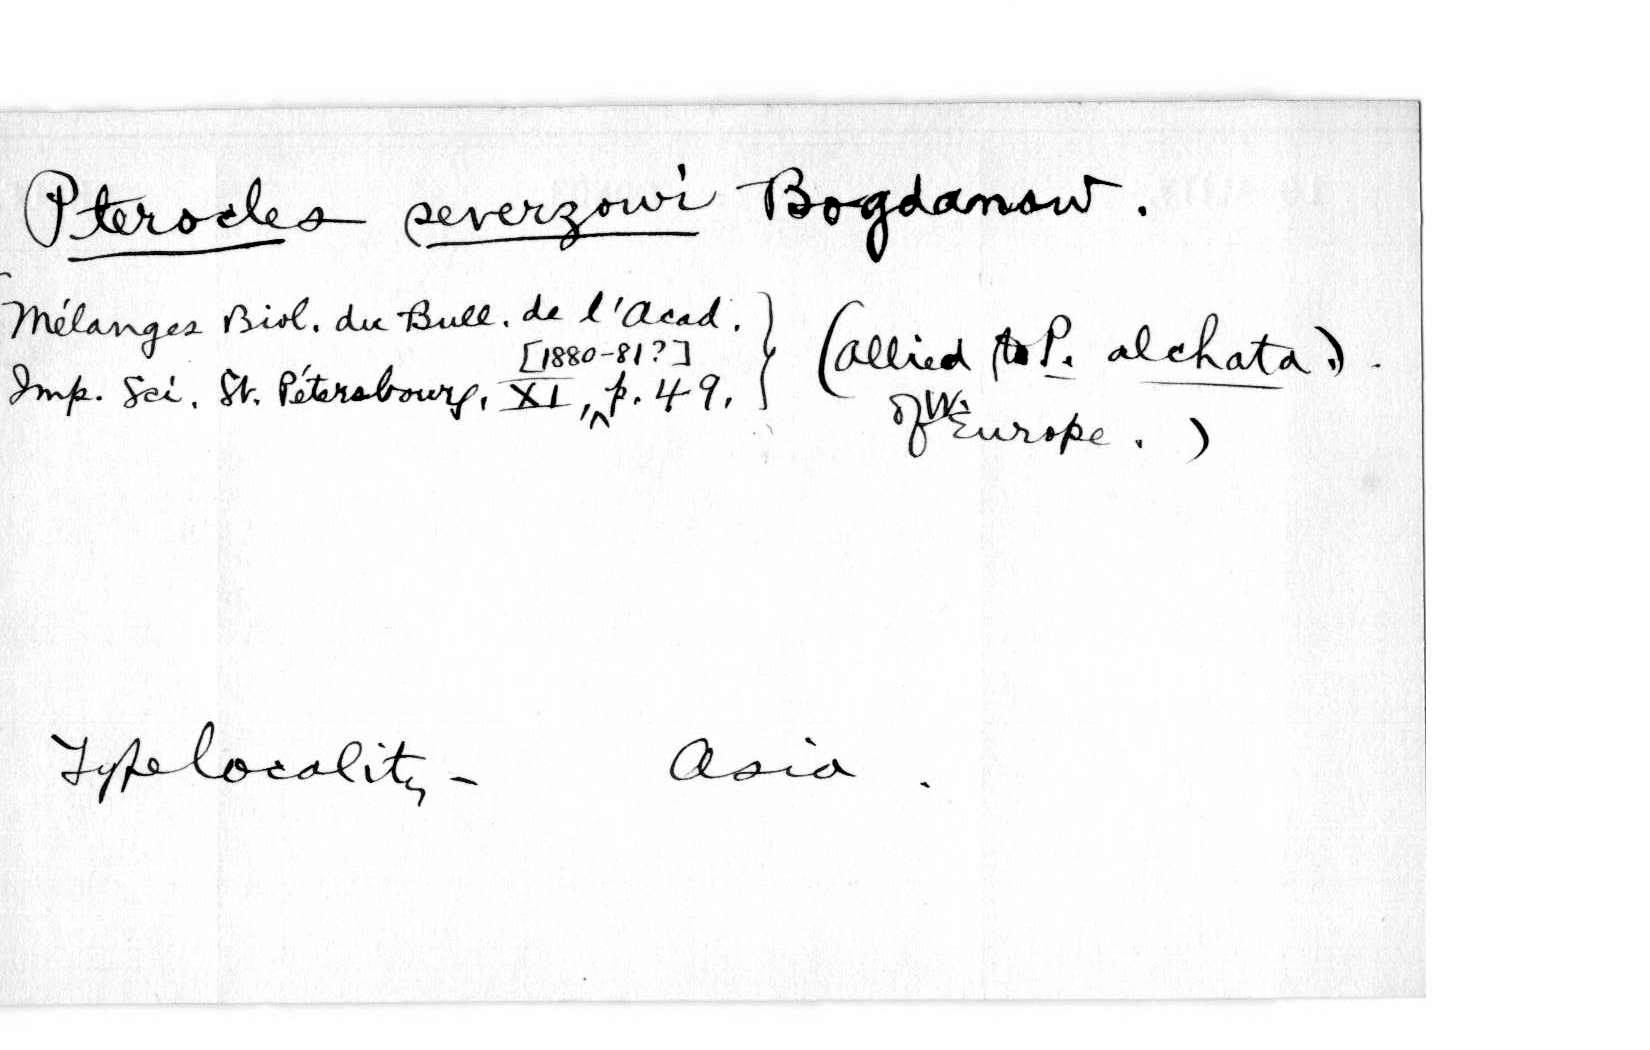 Pterocles severzowi Bogdanow.
Mélanges Biol. du Bull. de l'Acad.
[1880-81?]
Imp. Sci. St. Pétersbourg, XI, p. 49.
(allied to P. alchata).
of W. Europe.)
Type locality - Asia.